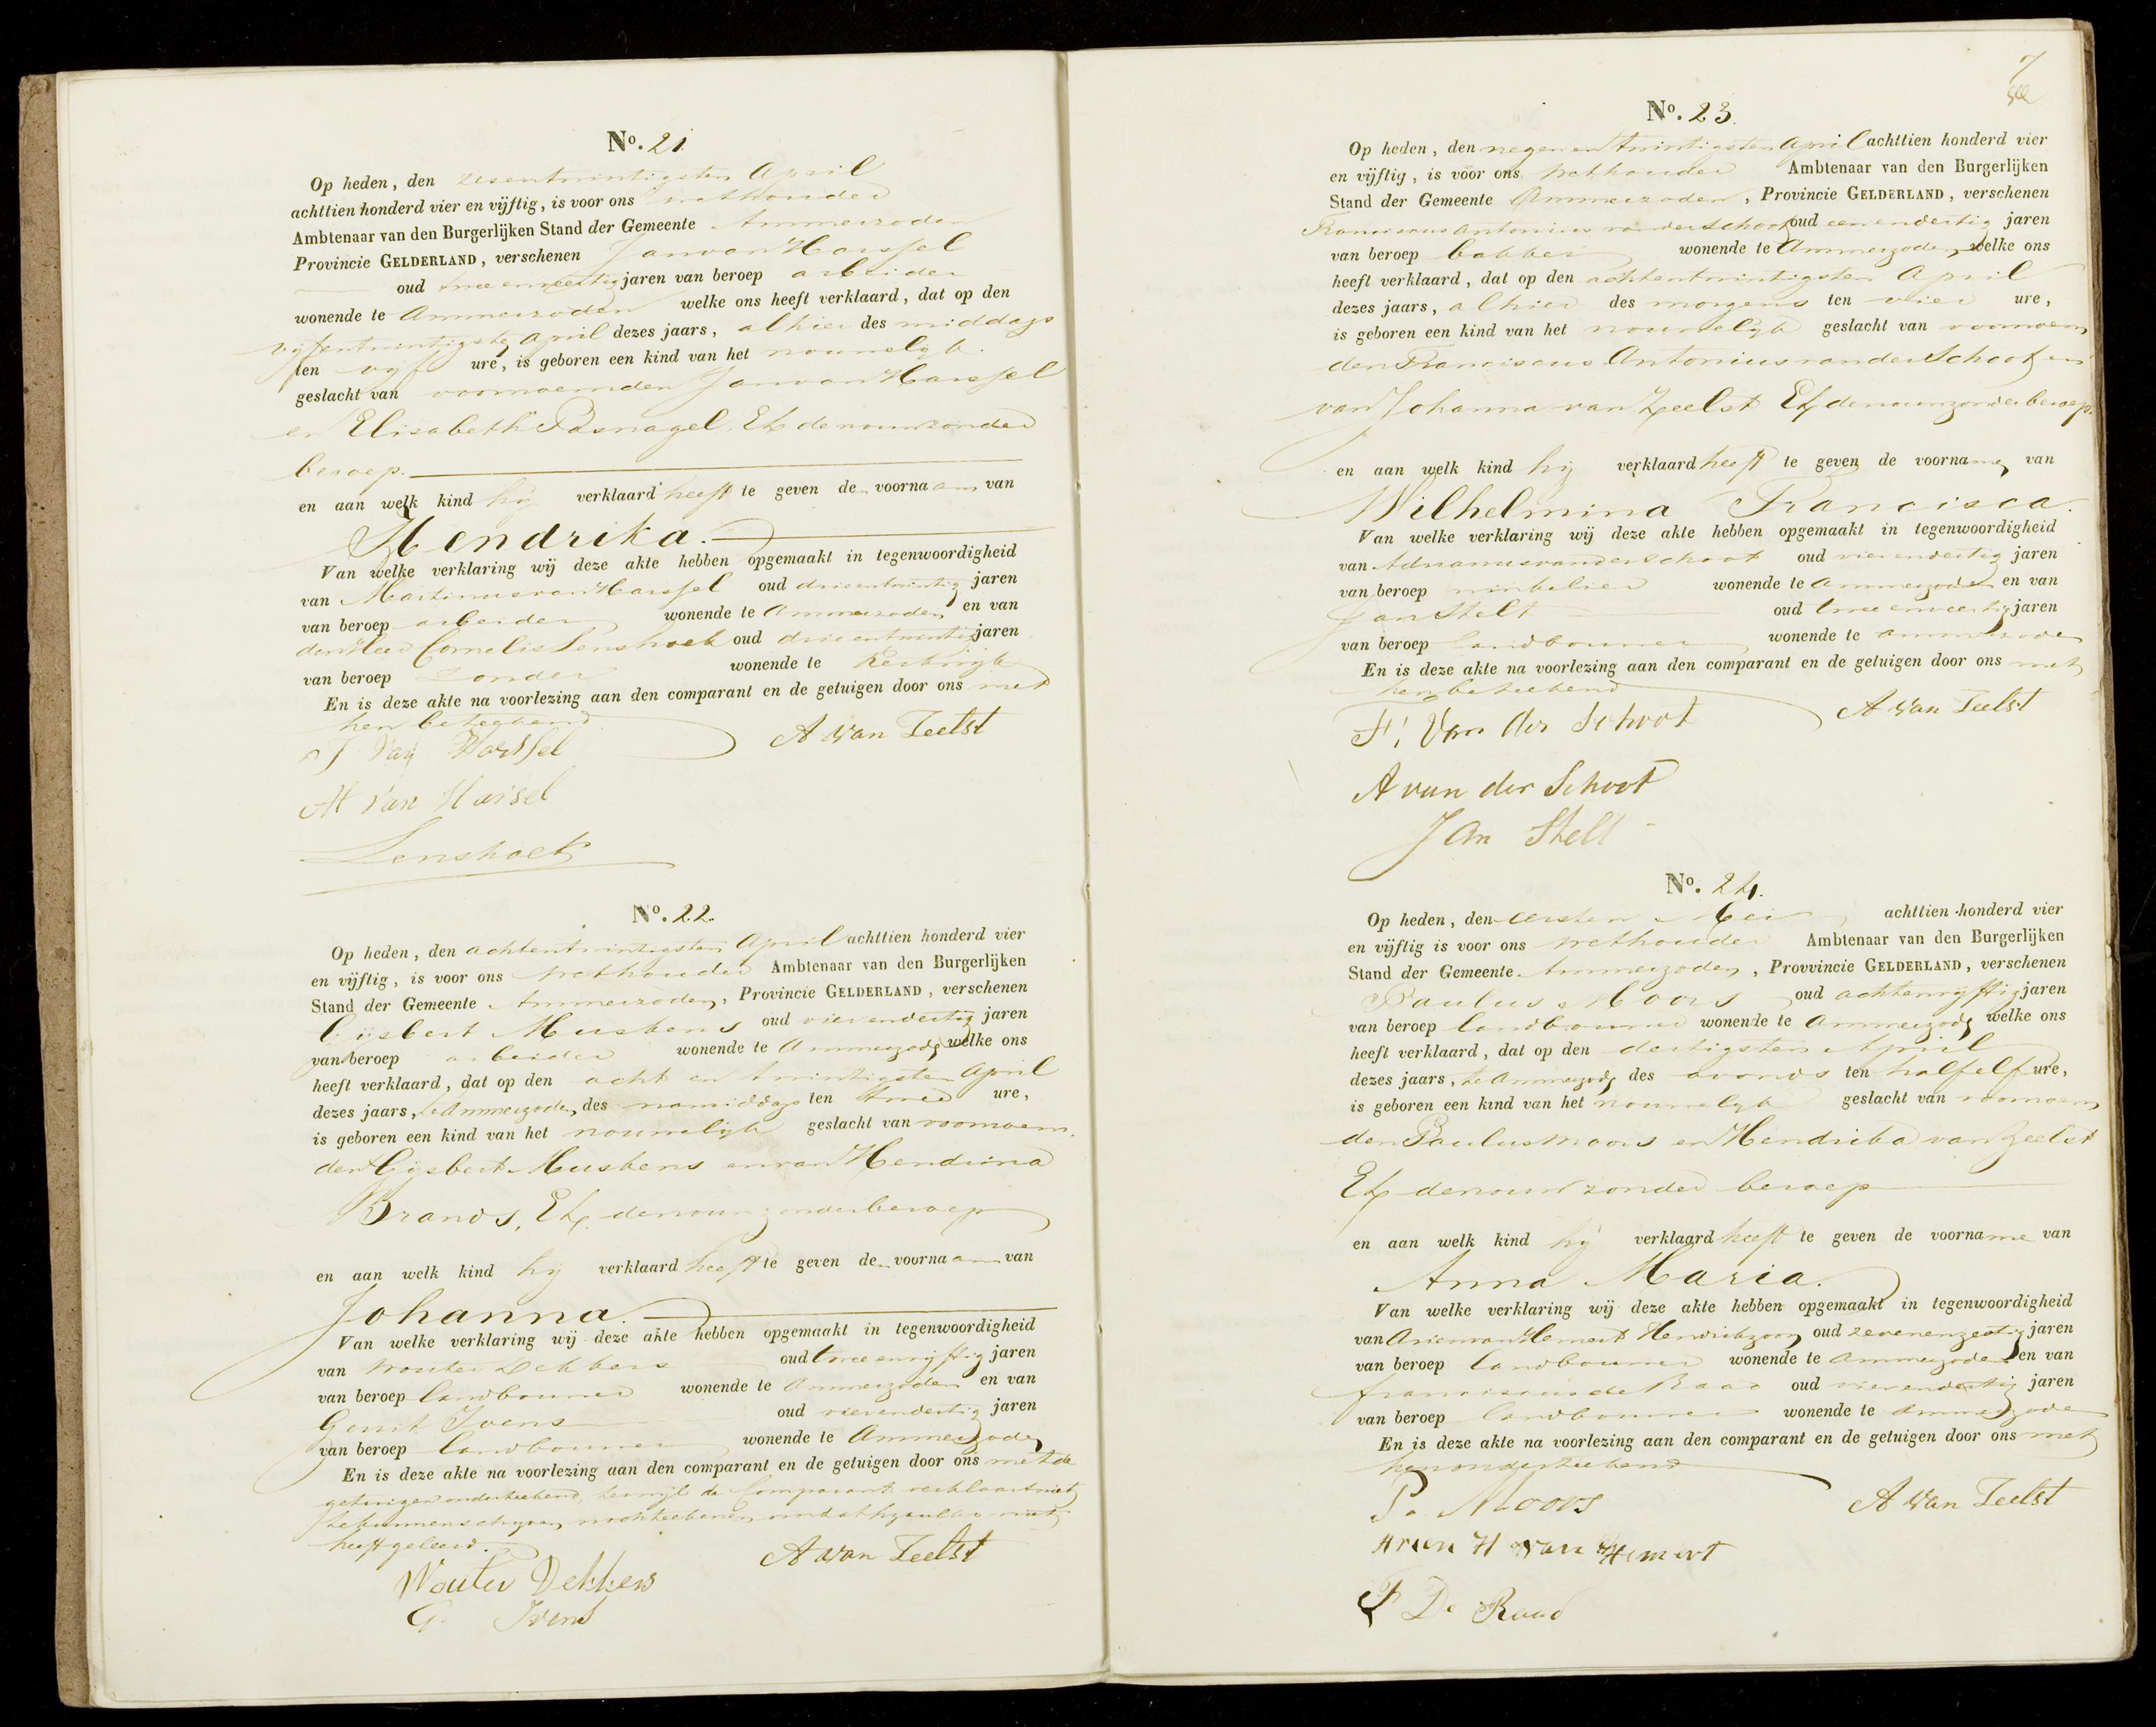 No. 21.
Op heden, den zesentwintigsten April
achttien honderd vier en vijftig, is voor ons wethouder
Ambtenaar van den Burgerlijken Stand der Gemeente Ammerzoden
Provincie GELDERLAND, verschenen Jan van Harssel
oud twee en veertig jaren van beroep arbeider
wonende te Ammerzoden welke ons heeft verklaard, dat op den
vijfentwintigsten April dezes jaars, alhier des middags
ten vijf ure, is geboren een kind van het vrouwelijk
geslacht van voornoemden Jan van Harssel
en Elisabeth Pasnagel, Echtevrouw zonder
beroep.
en aan welk kind hij verklaard heeft te geven de voornaam van
Hendrika.
Van welke verklaring wij deze akte hebben opgemaakt in tegenwoordigheid
van Martinus van Harssel oud drieentwintig jaren
van beroep arbeider wonende te Ammerzoden en van
den Heer Cornelis Lenshoek oud drieentwintig jaren
van beroep zonder wonende te Kerkwijk
En is deze akte na voorlezing aan den comparant en de getuigen door ons met
hen beteekend
J Van Harssel A van Zeelst
M van Harsel
Lenshoek
No. 22.
Op heden, den achtentwintigsten April achttien honderd vier
en vijftig, is voor ons wethouder Ambtenaar van den Burgerlijken
Stand der Gemeente Ammerzoden, Provincie GELDERLAND, verschenen
Gijsbert Muskens oud vierendertig jaren
van beroep arbeider wonende te Ammerzoden welke ons
heeft verklaard, dat op den acht en twintigsten April
dezes jaars, te Ammerzoden, des namiddags ten twee ure,
is geboren een kind van het vrouwelijk geslacht van voornoem
den Gijsbert Muskens en van Hendrina
Brands, Echtevrouw zonder beroep
en aan welk kind hij verklaard heeft te geven de voornaam van
Johanna.
Van welke verklaring wij deze akte hebben opgemaakt in tegenwoordigheid
van Wouter Dekkers oud tweeenvijftig jaren
van beroep landbouwer wonende te Ammerzoden en van
Gerrit Ivens oud vierendertig jaren
van beroep landbouwer wonende te Ammerzoden
En is deze akte na voorlezing aan den comparant en de getuigen door ons met de
getuigen onderteekend, terwijl de Comparant verklaart niet
te kunnen schrijven noch teekenen, omdat hij zulks niet
heeft geleerd. A van Zeelst
Wouter Dekkers
G. Ivens
7
No. 23.
Op heden, den negenentwintigsten April achttien honderd vier
en vijftig, is voor ons wethouder Ambtenaar van den Burgerlijken
Stand der Gemeente Ammerzoden, Provincie GELDERLAND, verschenen
Franciscus Antonius van der Schoot oud eenendertig jaren
van beroep bakker wonende te Ammerzoden, welke ons
heeft verklaard, dat op den achtentwintigsten April
dezes jaars, alhier des morgens ten vier ure,
is geboren een kind van het vrouwelijk geslacht van voornoem
den Franciscus Antonius van der Schoot en
van Johanna van Zeelst Echtevrouw zonder beroep.
en aan welk kind hij verklaard heeft te geven de voornamen van
Wilhelmina Francisca.
Van welke verklaring wij deze akte hebben opgemaakt in tegenwoordigheid
van Adrianus van der Schoot oud vierendertig jaren
van beroep winkelier wonende te Ammerzoden en van
Jan Stelt oud twee en veertig jaren
van beroep landbouwer wonende te Ammerzoden
En is deze akte na voorlezing aan den comparant en de getuigen door ons met
hen beteekend
F. Van der Schoot A van Zeelst
A van der Schoot
Jan Stelt
No. 24.
Op heden, den eersten Mei achttien honderd vier
en vijftig is voor ons wethouder Ambtenaar van den Burgerlijken
Stand der Gemeente Ammerzoden, Provvincie GELDERLAND, verschenen
Paulus Moors oud achtenvijftig jaren
van beroep landbouwer wonende te Ammerzoden welke ons
heeft verklaard, dat op den dertigsten April
dezes jaars, te Ammerzoden des avonds ten half elf ure,
is geboren een kind van het vrouwelijk geslacht van voornoem
den Paulus Moors en Hendrika van Zeelst
Echtevrouw zonder beroep
en aan welk kind hij verklaard heeft te geven de voorname van
Anna Maria.
Van welke verklaring wij deze akte hebben opgemaakt in tegenwoordigheid
van Arien van Hemert Hendrikzoon oud zevenenzestig jaren
van beroep landbouwer wonende te Ammerzoden en van
Franciscus de Raad oud vierendertig jaren
van beroep landbouwer wonende te Ammerzoden
En is deze akte na voorlezing aan den comparant en de getuigen door ons met
hen onderteekend
P. Moors A van Zeelst
Arien H van Hemert
F De Raad